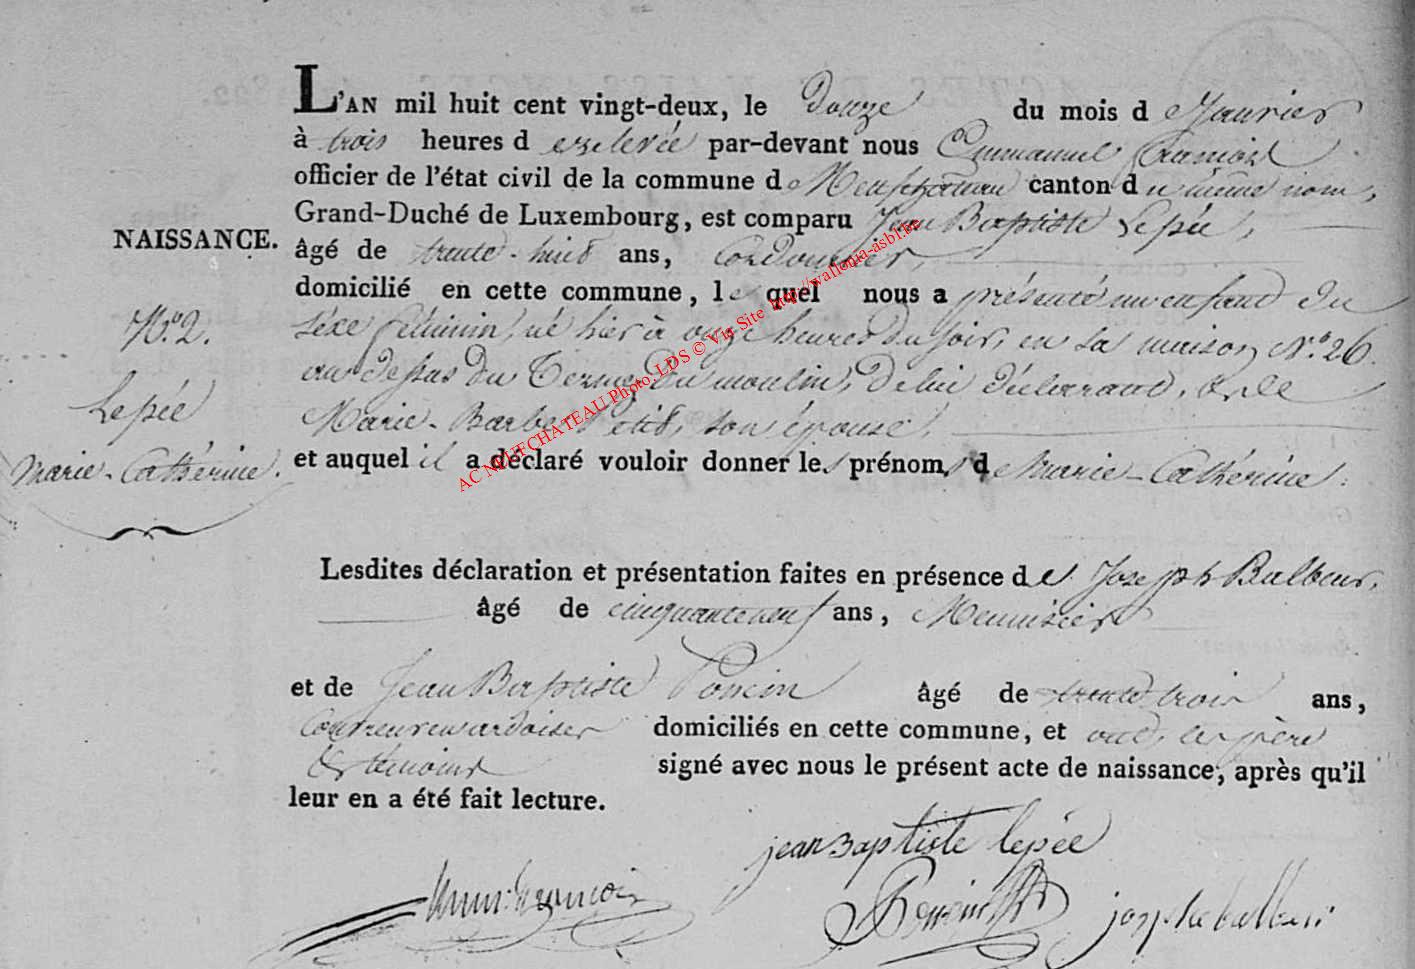 L'AN mil huit cent vingt-deux, le Douze du mois d e Janvier
à trois heures d e relevée par-devant nous Emmanuel
officier de l'état civil de la commune d e Neufchateau canton d u même nom,
Grand-Duché de Luxembourg, est comparu Jean Baptiste Lepée,
NAISSANCE.
âgé de trente-huit ans, Cordonnier,
domicilié en cette commune, l e quel nous a présenté un enfant du
N.º 2.
séxe féminin, né hier à onze heures du soir, en sa maison N.º 26
au dessus du du moulin, de lui déclarant, & de
Lepée
Marie-Barbe Petit, son épouse,
Marie-Catherine.
et auquel il a déclaré vouloir donner les prénoms de Marie-Catherine.
Lesdites déclaration et présentation faites en présence de Joseph Balbeur,
âgé de cinquante neuf ans, Menuisier
et de Jean Baptiste Poncin âgé de trente trois ans,
Couvreur en ardoises domiciliés en cette commune, et ont, les père
& témoins signé avec nous le présent acte de naissance, après qu'il
leur en a été fait lecture.
jean Baptiste lepée
Poncin
AC NEUFCHATEAU Photo. LDS © Via Site http://wallonia-asbl.be